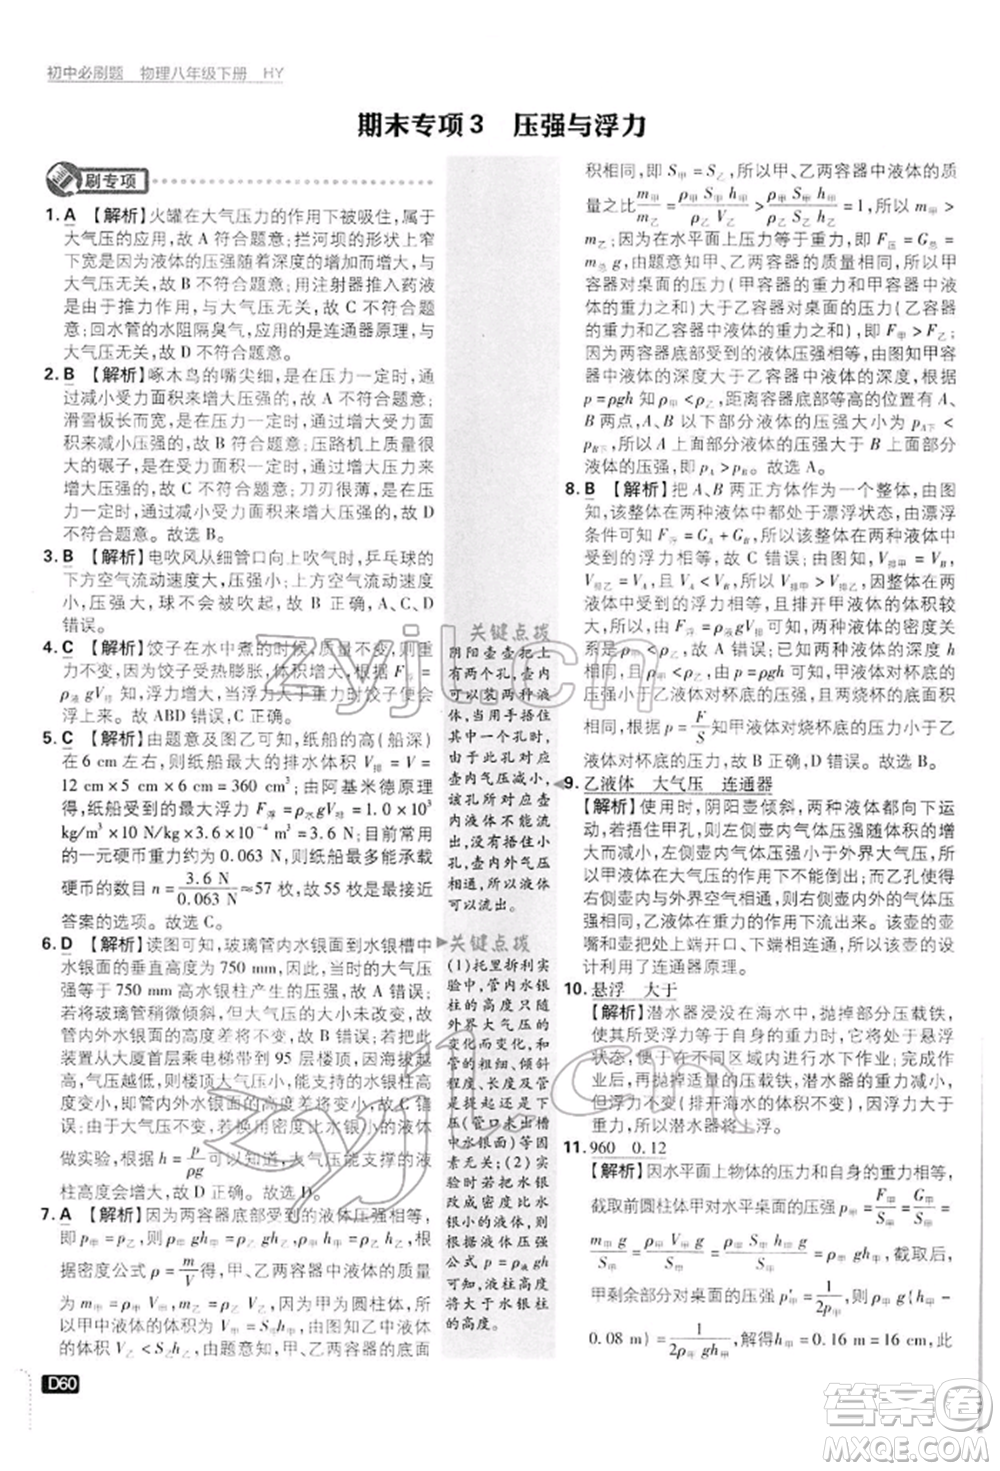 初中必刷题 物理八年级下册 HY
期末专项3 压强与浮力
刷专项
1. A 【解析】火罐在大气压力的作用下被吸住,属于
大气压的应用,故 A 符合题意;拦河坝的形状上窄
下宽是因为液体的压强随着深度的增加而增大,
与大气压无关,故 B 不符合题意;用注射器推入药液
是由于推力作用,与大气压无关,故 C 不符合题
意;回水管的水阻隔臭气,是连通器原理,与大气
压无关,故 D 不符合题意。
2. B 【解析】啄木鸟的嘴尖细,是在压力一定时,通
过减小受力面积来增大压强的,故 A 不符合题意;
滑雪板长而宽,是在压力一定时,通过增大受力面
积来减小压强,故 B 符合题意;压路机上质量很大
的碾子,是在受力面积一定时,通过增大压力来
增大压强的,故 C 不符合题意;刀刃很薄,是在压力
一定时,通过减小受力面积来增大压强的,故 D
不符合题意。故选 B。
3. B 【解析】电吹风从细管口向上吹气时,乒乓球的
下方空气流动速度大,压强小,上方空气流动速度
小,压强大,故乒乓球没有被吹起,故 B 符合题意。
故选 B。
4. C 【解析】饺子在水中煮的时候,质量不变,则重
力不变,饺子受热膨胀,体积增大,根据 F浮 =
ρ液 gV排 可知,当浮力大于重力时饺子便会
浮上来。故 ABD 错误,C 正确。
5. C 【解析】由题意及图乙可知,纸船的高(船深)
在 6 cm 左右,可得船的最大排水体积 V排 = V =
12 cm×5 cm×6 cm = 360 cm³;由阿基米德原理
得,纸船受到的最大浮力 F浮 = ρ水gV排 = 1.0×10³
kg/m³×10 N/kg×3.6×10⁻⁴ m³ = 3.6 N;目前常用的
的一元硬币重力约 0.063 N,则纸船最多能承载
硬币的数目 n = 3.6 N/0.063 N ≈ 57 枚,选择最接近
答案的选项。故选 C。
6. D 【解析】读图可知,玻璃管内水银面到水银槽中
水银面的垂直高度为 750 mm,因此当时的大气压
强等于 750 mm 高水银柱产生的压强,故 A 错误;
将玻璃管稍微倾斜,大气压的大小未改变,故玻璃
管内外水银面的高度差将不变,故 B 错误;将整个
装置从大厦首层乘电梯带到 95 层楼时,高度升
高了,则该楼层的大气压降低,能支持的水银柱高
度变小,即管内外水银面的高度差变小,故 C 错
误;大气压不变,用密度比水银小的液体
做实验,根据 h = p/ρg 可以知道,大气压能支撑的液
柱高度将变大,故 D 正确。故选 D。
7. A 【解析】因为两容器底部受到的液体压强相等,
即 p甲 = p乙,所以 ρ甲 gh甲 = ρ乙 gh乙,所以根
据密度公式 ρ = m/V 得,甲、乙两容器中液体的质量
为 m甲 = ρ甲 V甲、m乙 = ρ乙 V乙,因为甲为圆柱体,所
以甲中液体的体积为 V甲 = S甲h甲;如图可知,乙中液
体的体积 V乙 < S乙h乙,由题意知,甲、乙两容器的底面
D60
关键点拨
阴阳壶壶把上
有两个孔,壶内
可以装两种液
体,当用手捂住
其中一个孔时,
由于此孔对应
壶内气压减小,
该孔对应壶
内液体不能流
出,另一个没捂
住孔,壶内外气压
相通,所以液体
可以流出。
关键点拨
(1)托里拆利实
验中,管内水银
柱的高度只随
外界大气压的
变化而变化,与
管的粗细、倾斜
程度、长度及是
否将玻璃管提
位(管口未出槽
中水银面)等因
素无关;(2)实
验中若将水银
改成密度比水
银小的液体,根
据液体压强公
式 p = ρ液 gh 可
知,液体高度
将大于水银柱
的高度。
积相同,即 S甲 = S乙,所以甲、乙两容器中液体的质
量之比 m甲/m乙 = ρ甲 S甲 h甲/ρ乙 V乙 > ρ甲 S甲 h甲/ρ乙 S乙 h乙 = 1,所以 m甲 >
m乙;因为在水平面上压力等于重力,即 F压 = G总 =
m总 g,由题意知甲、乙两容器的质量相等,所以甲
容器对桌面的压力(甲容器的重力和甲容器中液体
的重力之和)大于乙容器对桌面的压力(乙容器
的重力和乙容器中液体的重力之和),即 F甲 > F乙;
因为两容器底部受到的液体压强相等,由图知甲容
器中液体的深度大于乙容器中液体的深度,根据
p = ρgh 知 ρ甲 < ρ乙,距离容器底部等高的位置有 A、
B 两点,A、B 以下部分液体的压强大小为 pA下 <
pB下,所以 A 上面部分液体的压强大于 B 上面部分
液体的压强,即 pA > pB。故选 A。
8. B 【解析】把 A、B 两正方体作为一个整体,由图
知,该整体在两种液体中都处于漂浮状态,由漂浮
条件可知受到的浮力 F浮 = GA + GB,所以两种情况
下受到的浮力相等,故 C 错误;由图知,V排甲 = VB,
V排乙 > VB,该整体在乙液体中排开液体的体积较
大,而浮力相等,根据 F浮 = ρ液gV排 可知,甲液体的
密度较大,故 D 错误;由图知两种液体的深度 h 相
同,且 ρ甲 > ρ乙,由 p = ρgh 知甲液体对杯底的压
强大于乙液体对杯底的压强,且两烧杯的底面积
相同,根据 p = F/S 知甲液体对烧杯底的压力大于乙
液体对烧杯底的压力,故 B 正确,A 错误。故选 B。
9. 乙液体 大气压 连通器
【解析】使用时,阴阳壶倾斜,两种液体都向下运
动,所以甲、乙液体上方的气体体积都会增大;如果
捂住甲孔,则左侧壶内气体压强随体积的增大而减
小,左侧壶内气体压强小于外界大气压,所以甲液
体不能倒出;乙孔和外界大气相通,右侧壶内外气
压相等,乙液体在重力的作用下流出来。该壶的壶
嘴和壶肚构成上端开口、下端相连通,所以壶的设
计利用了连通器原理。
10. 悬浮 大于
【解析】潜水器浸没在海水中,抛掉部分压载铁,
使其所受浮力等于自身的重力时,它将处于悬浮
状态;在不同区域内进行水下作业;完成作业
后,再抛掉适量的压载铁,潜水器的重力变小,
但浮力(排开海水的体积不变)不变,浮力大于重
力,所以潜水器将上浮。
11. 960 0.12
【解析】因水平面上物体的压力和自身的重力相等,
截取前圆柱体甲对水平桌面的压强 p甲 = F甲/S甲 = G甲/S甲 =
m甲 g/S甲 = ρ甲V甲 g/S甲 = ρ甲S甲h甲g/S甲 = ρ甲 gh甲,截取后,
甲剩余部分对桌面的压强 p′甲 = 1/2 p甲,即 ρ甲 g(h甲 -
0.08 m) = 1/2 ρ甲 gh甲,解得 h甲 = 0.16 m = 16 cm,此
Zyjl.cn
Zyjl.cn
答案圈
MXQE.COM